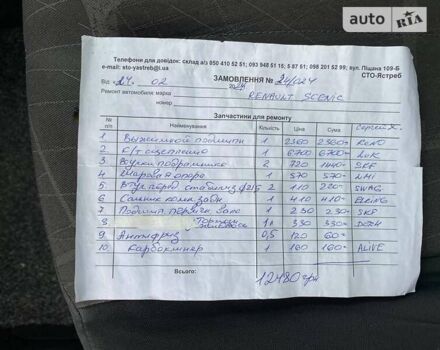 auto RIA
Телефони для довідок: склад а/з 050 410 52 51; 093 948 51 15; 5 87 51; 098 201 52 99; вул. Піщана 109-Б
e-mail: sto-yastreb@i.ua СТО-Ястреб
Від 27. 02 ЗАМОВЛЕННЯ № 24/024
Ремонт автомобіля: марка RENAULT SCENIC
номер
Запчастини для ремонту
№ п/п Найменування Кількість Ціна Сума Сергей Х.
1 Выжимной подшипн 1 2360 2360= RENO
2 К/т сцепления 1 6700 6700= LUK
3 2 720 1440= SKF
4 Шаровая опора 1 570 570=
5 Втул. перед стабилиз ф21,5 2 110 220= SWAG
6 Сальник колн. задн 1 410 410= ELRING
7 Подшип 1 230 230= SKF
8 Тормозн 1л 330 330=
9 Антифриз 0,5 120 60=
10 Карбоклинер 1 160 160= ALIVE
Всього: 12480 грн